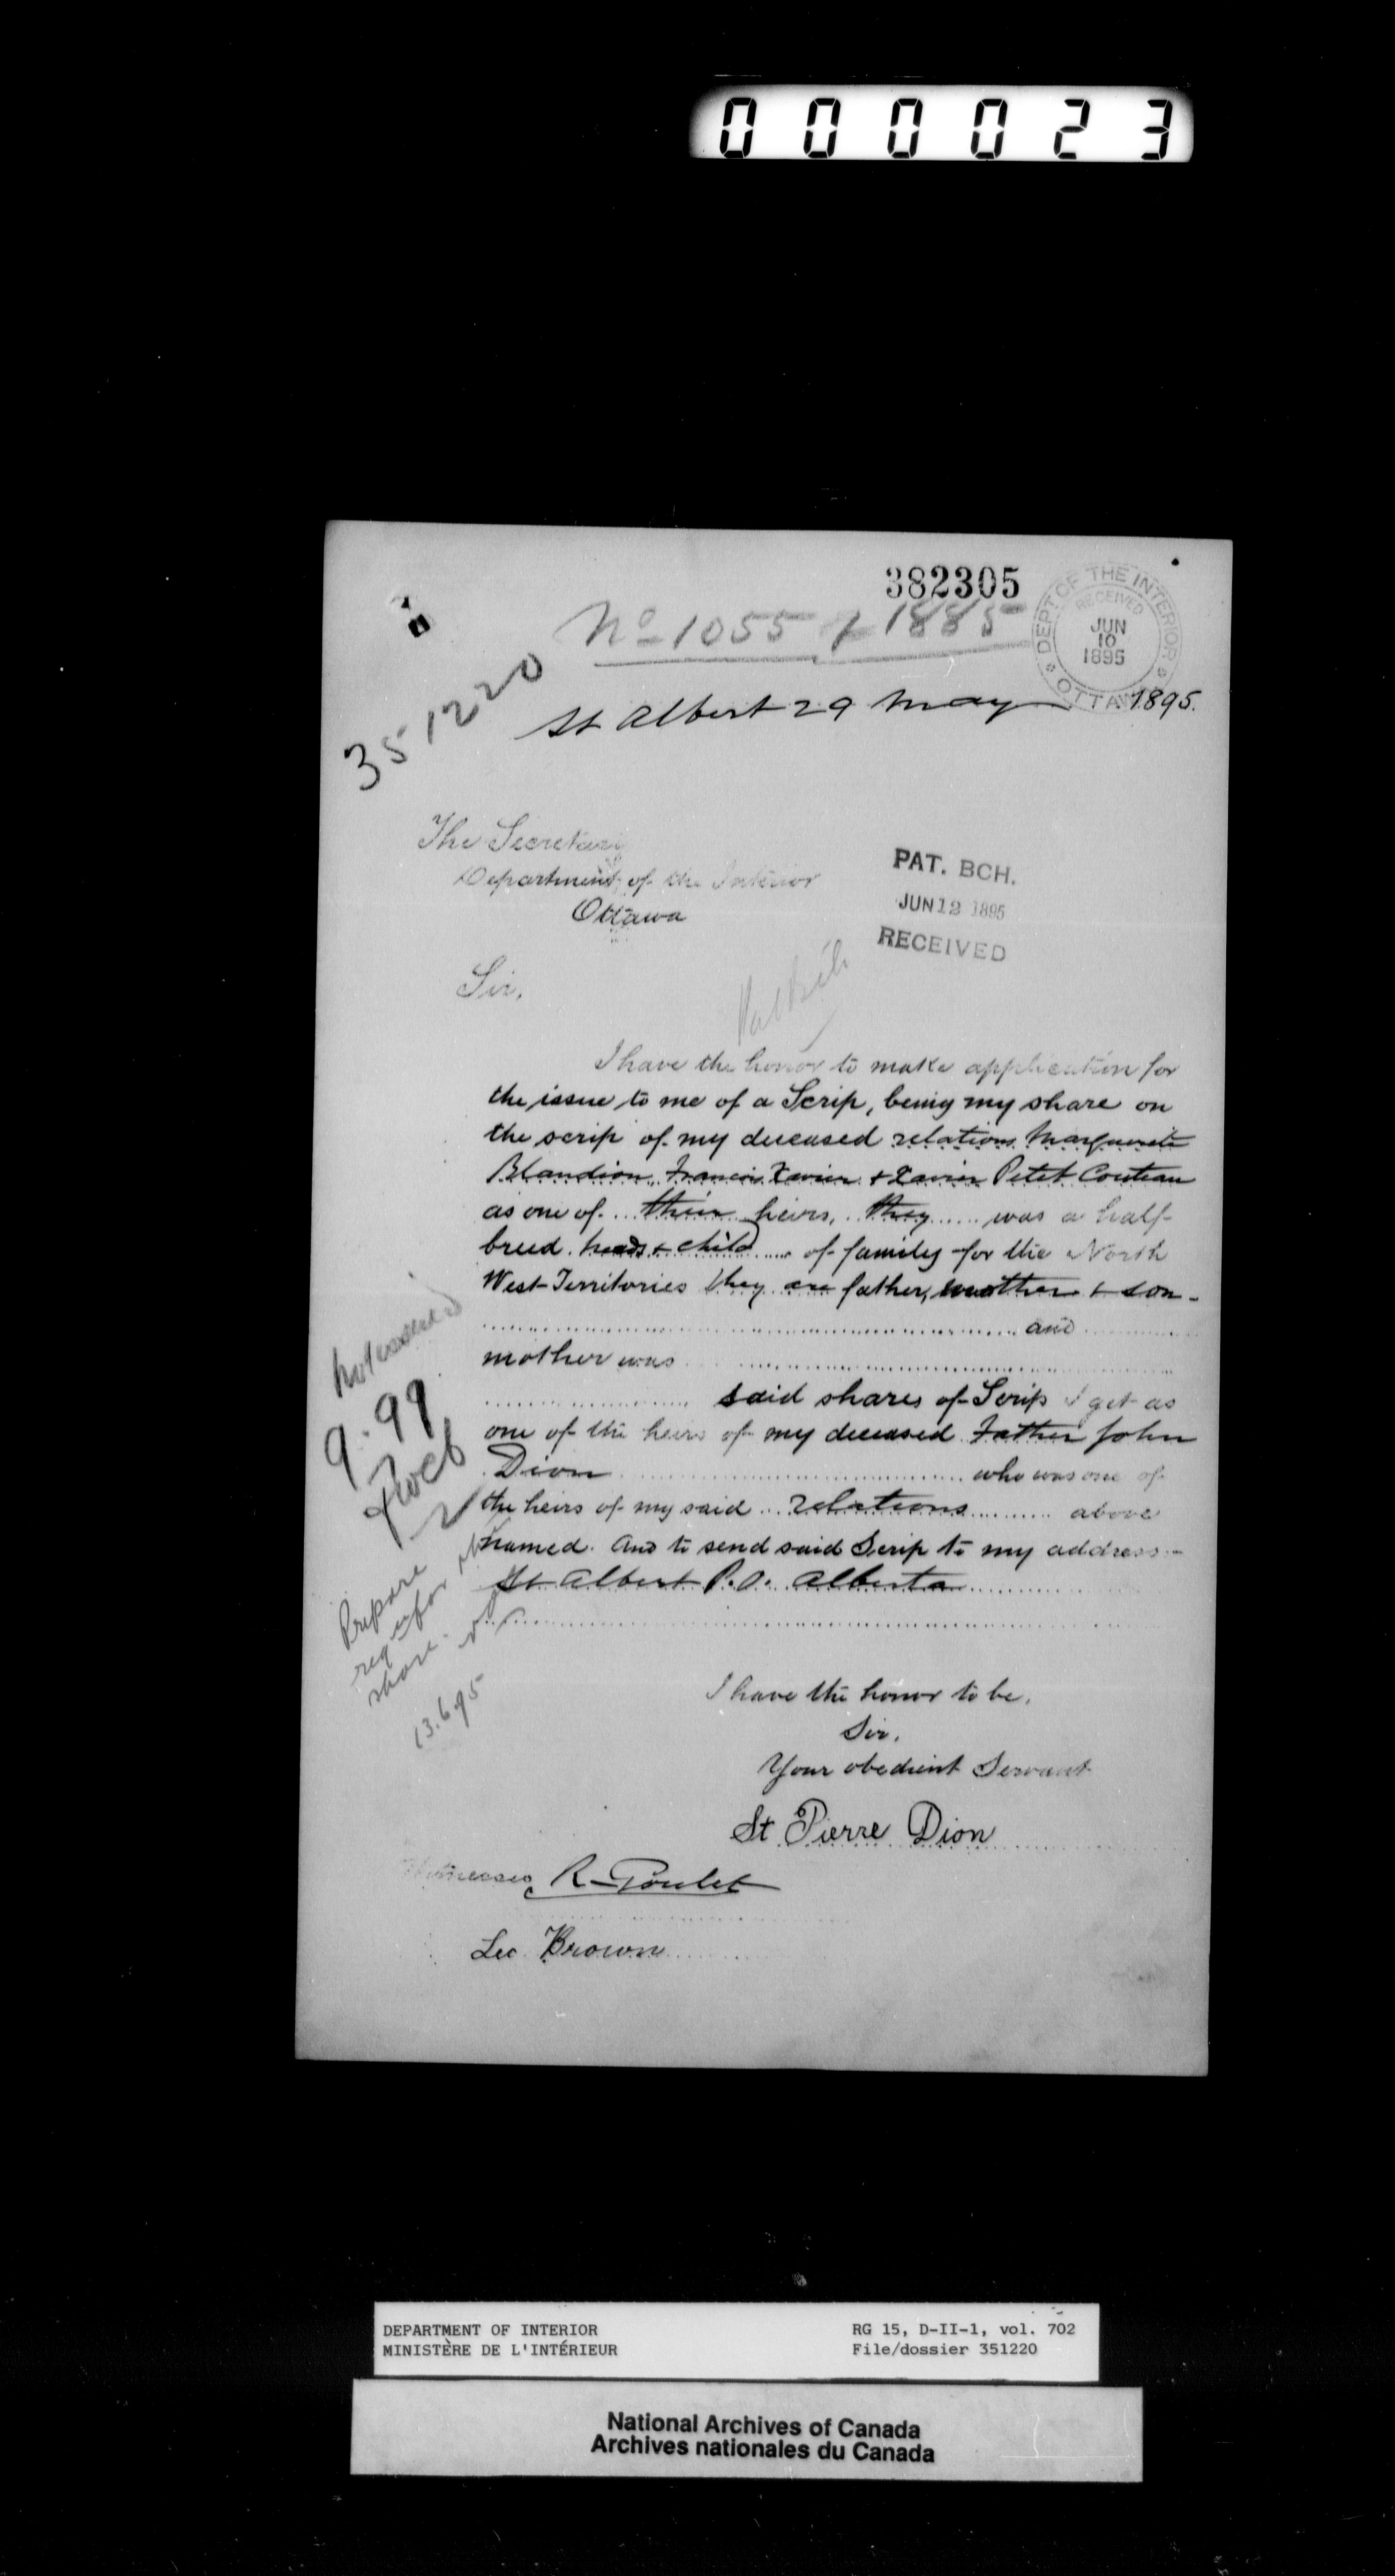 000023
382305
No 1055 of 1885
DEPT OF THE INTERIOR
RECEIVED
JUN
10
1895
OTTAWA
351220
St Albert 29 May 1895.
The Secretary
Department of the Interior
Ottawa
PAT. BCH.
JUN 12 1895
RECEIVED
Sir,
I have the honor to make application for
the issue to me of a Scrip, being my share on
the scrip of my deceased relations Marguerite
Blandion, Francis Xavier + Xavier Petit Couteau
as one of their heirs, they was a half-
breed heads + child of family for the North
West Territories they are father, mother + son -
and
mother was
said shares of Scrip I get as
one of the heirs of my deceased Father John
Dion who was one of
the heirs of my said relations above
named. And to send said Scrip to my address -
St Albert P.O. Alberta
9.99
Prepare
req for
share.
13.6.95
I have the honor to be,
Sir,
Your obedient Servant
St Pierre Dion
Witnesses R. Goulet
Leo Brown
DEPARTMENT OF INTERIOR
MINISTÈRE DE L'INTÉRIEUR
RG 15, D-II-1, vol. 702
File/dossier 351220
National Archives of Canada
Archives nationales du Canada